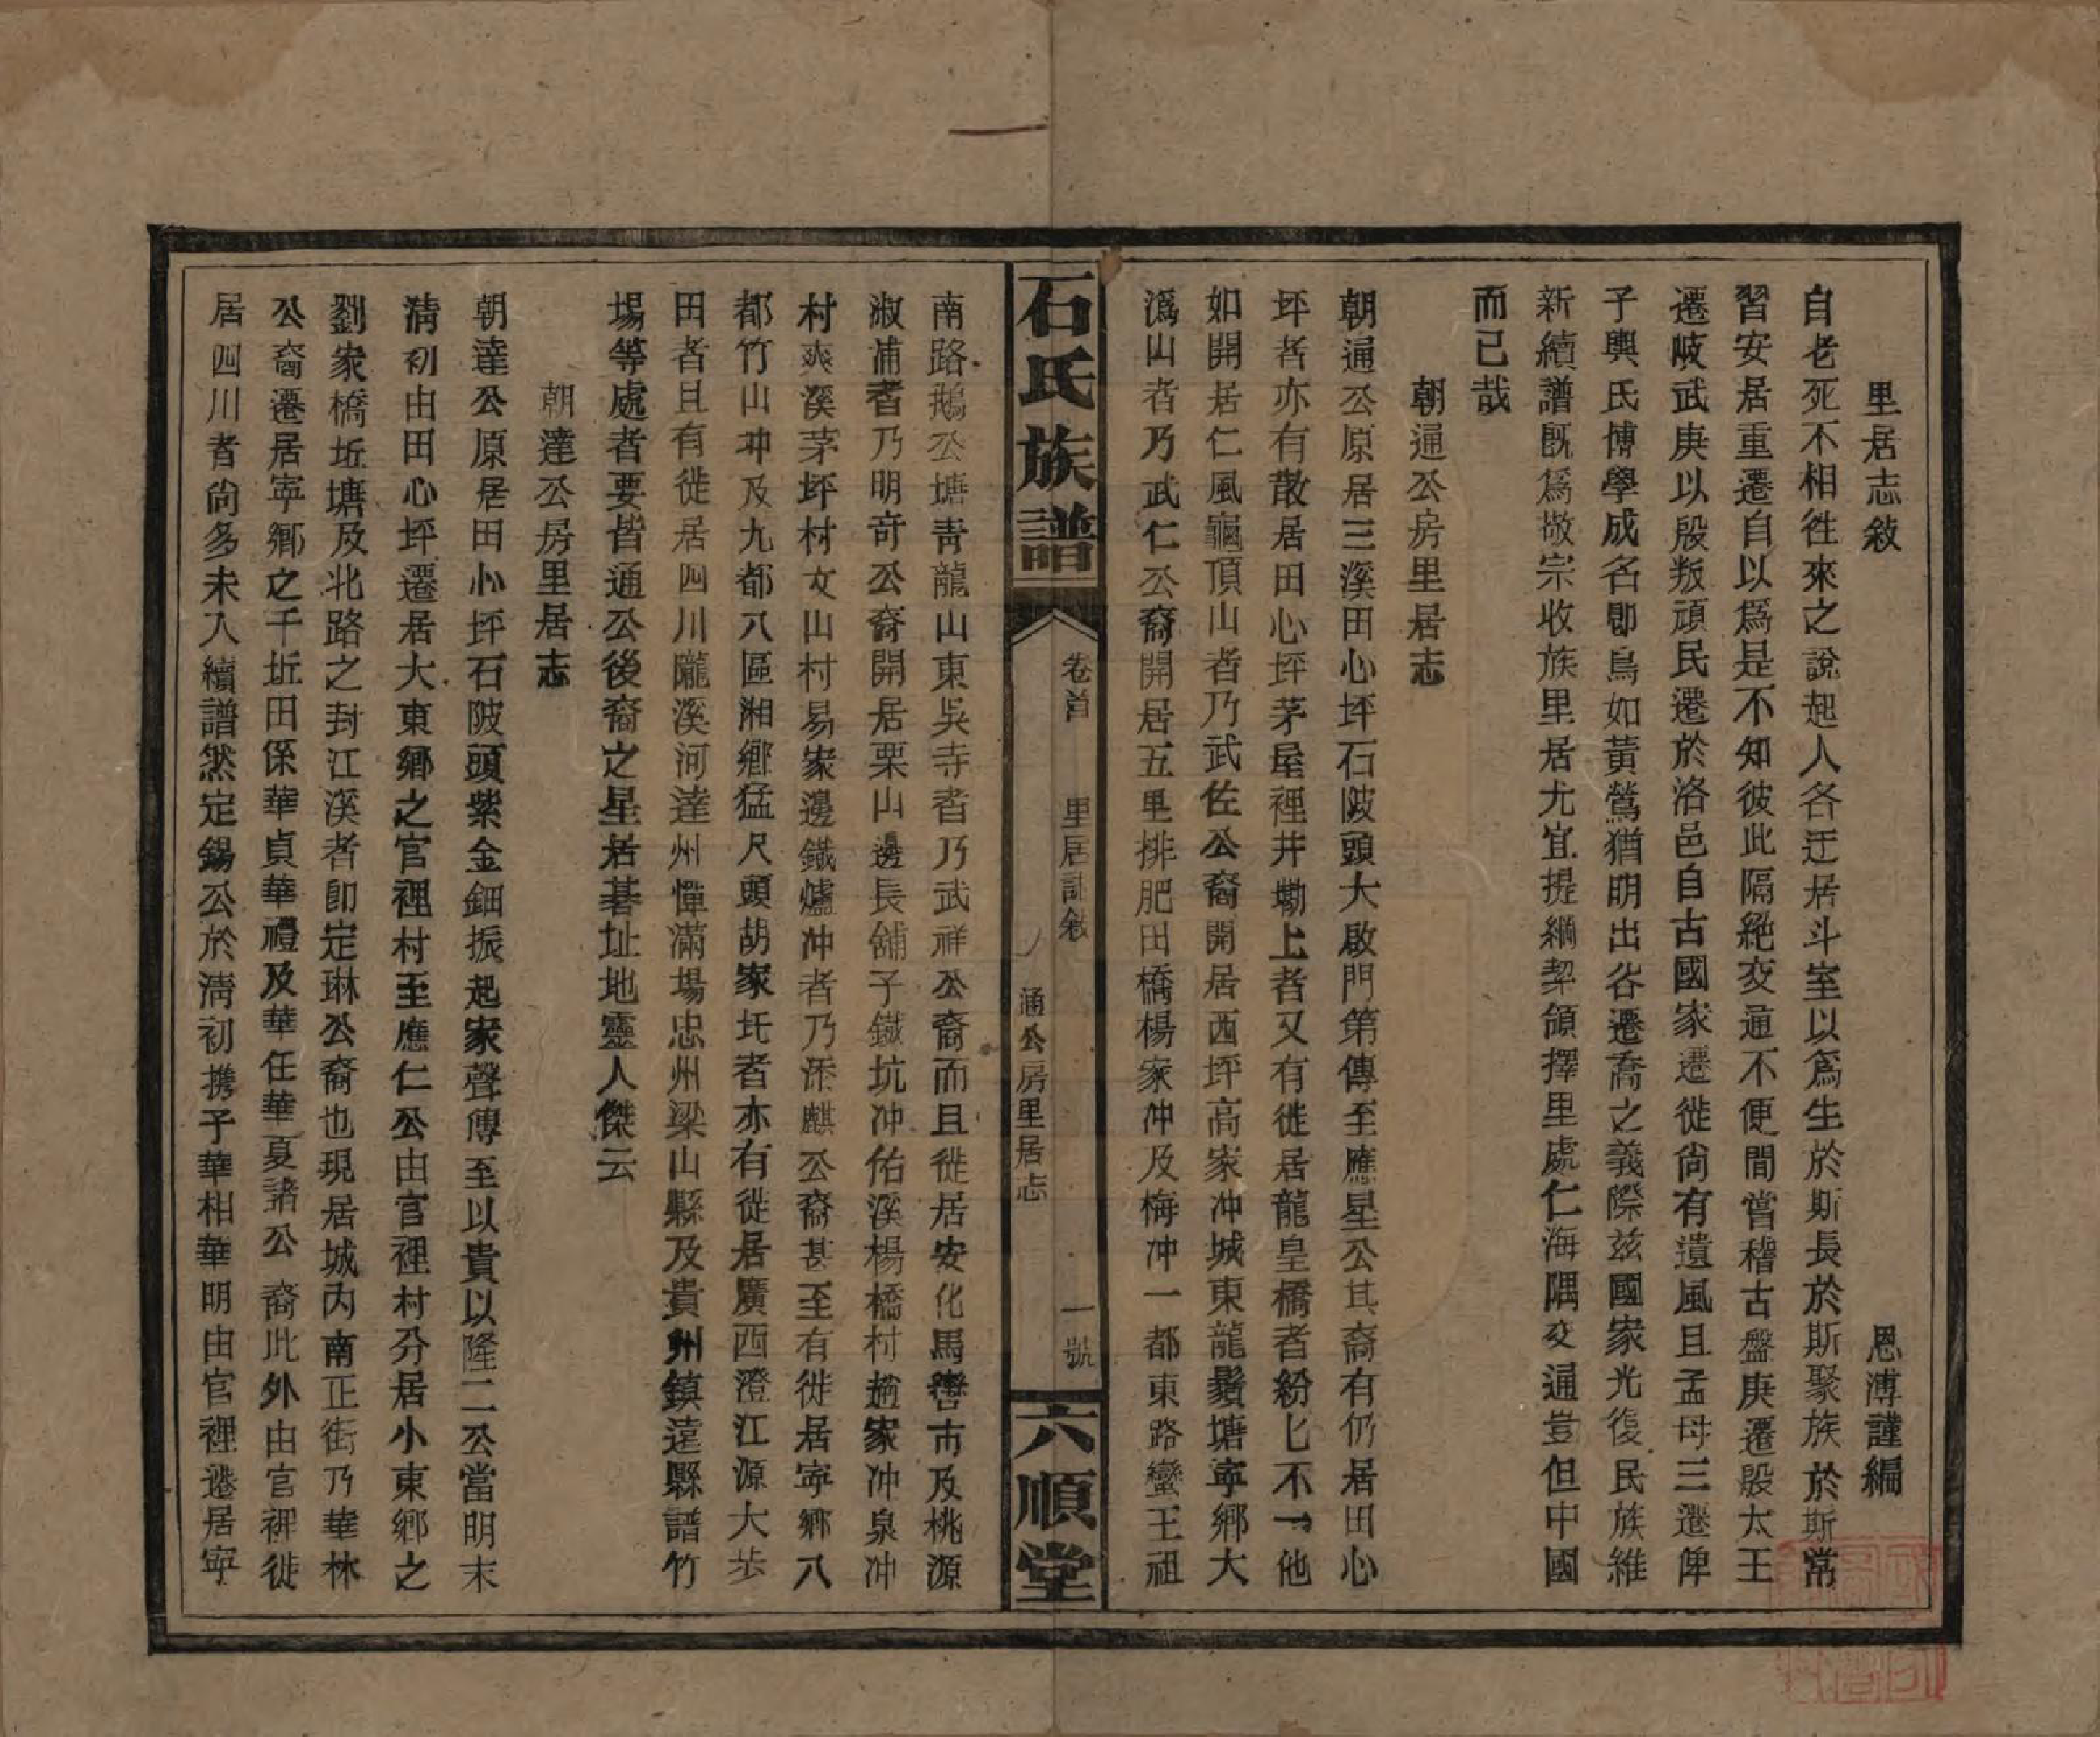 里居志敍　恩溥謹編
自老死不相徃來之說起人各迂居斗室以爲生於斯長於斯聚族於斯常
習安居重遷自以爲是不知彼此隔絶交通不便間嘗稽古盤庚遷殷太王
遷岐武庚以殷叛頑民遷於洛邑自古國家遷徙尙有遺風且孟母三遷俾
子輿氏博學成名卽鳥如黃鶯猶明出谷遷喬之義際兹國家光復民族維
新續譜旣爲敬宗收族里居尤宜提綱挈領擇里處仁海隅交通豈但中國
而已哉
朝通公房里居志
朝通公原居三溪田心坪石陂頭大啟門第傳至應星公其裔有仍居田心
坪者亦有散居田心坪茅屋裡井墈上者又有徙居龍皇橋者紛匕不一他
如開居仁風龜頂山者乃武佐公裔開居西坪高家冲城東龍鬚塘寧鄉大
潙山者乃武仁公裔開居五里排肥田橋楊家冲及梅冲一都東路蠻王祖
石氏族譜　卷首　里居誌敍　通公房里居志　一號　六順堂
南路鵝公塘靑龍山東吳寺者乃武祥公裔而且徙居安化馬轡市及桃源
淑浦者乃明奇公裔開居栗山邊長舖子鐵坑冲佑溪楊橋村趙家冲泉冲
村爽溪茅坪村文山村易家邊鐵爐冲者乃添麒公裔甚至有徙居寧鄉八
都竹山冲及九都八區湘鄉猛尺頭胡家圫者亦有徙居廣西澄江源大坵
田者且有徙居四川隴溪河達州憚滿場忠州梁山縣及貴州鎮遠縣譜竹
場等處者要皆通公後裔之星居碁址地靈人傑云
朝達公房里居志
朝達公原居田小坪石陂頭紫金鈿振起家聲傳至以貴以隆二公當明末
淸初由田心坪遷居大東鄉之官裡村至應仁公由官裡村分居小東鄉之
劉家橋坵塘及北路之封江溪者卽定琳公裔也現居城內南正街乃華林
公裔遷居寧鄉之千坵田係華貞華禮及華任華夏諸公裔此外由官裡徙
居四川者尙多未入續譜然定錫公於淸初携子華相華明由官裡遷居寧